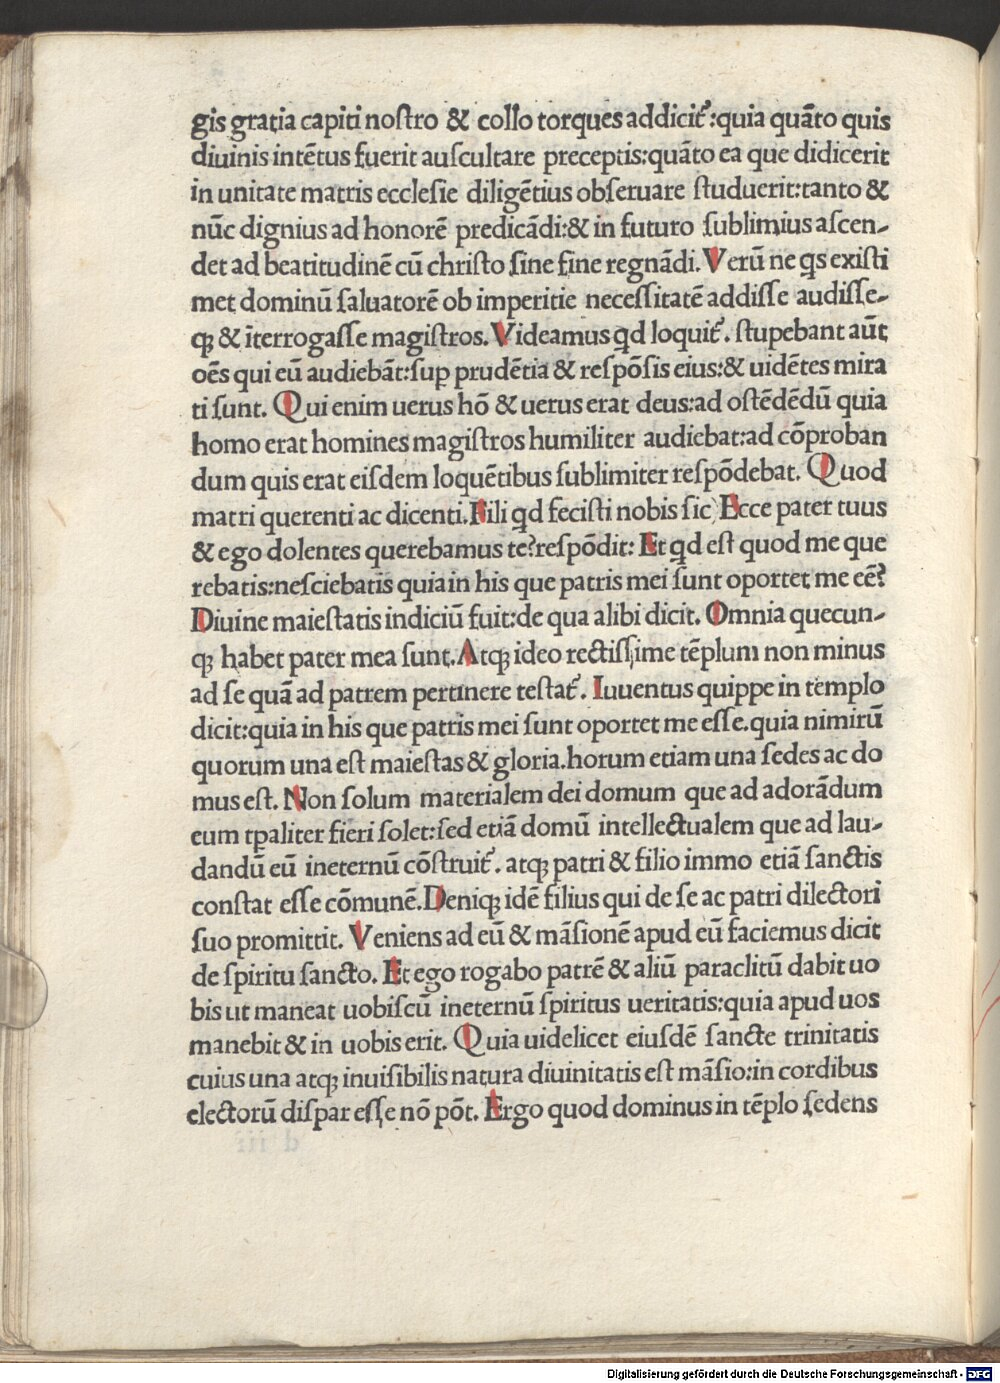 gis gratia capiti nostro & collo torques addicit᷑:quia quãto quis
diuinis intẽtus fuerit auſcultare preceptis:quãto ea que didicerit
in unitate matris ecclesie diligẽtius obſeruare ſtuduerit:tanto &
nũc dignius ad honorẽ predicãdi:& in futuro ſublimius aſcen-
det ad beatitudinẽ cũ chriſto ſine fine regnãdi. Verũ ne qs exiſti
met dominũ ſaluatorẽ ob imperitie neceſſitatẽ addiſſe audiſſe-
qꝫ & ĩterrogaſſe magiſtros. Videamus qd loquit᷑. ſtupebant aũt
oẽs qui eũ audiebãt:ſuꝑ prudẽtia & reſpõſis eius:& uidẽtes mira
ti ſunt. Qui enim uerus hõ & uerus erat deus:ad oſtẽdẽdũ quia
homo erat homines magiſtros humiliter audiebat:ad cõproban
dum quis erat eiſdem loquẽtibus ſublimiter reſpõdebat. Quod
matri querenti ac dicenti. Fili qd feciſti nobis ſic) Ecce pater tuus
& ego dolentes querebamus te?reſpõdit: Et qd eſt quod me que
rebatis:neſciebatis quia in his que patris mei ſunt oportet me eẽ?
Diuine maieſtatis indiciũ fuit:de qua alibi dicit. Omnia quecun-
qꝫ habet pater mea ſunt. Atqꝫ ideo rectiſſime tẽplum non minus
ad ſe quã ad patrem pertinere teſtat᷑. Iuuentus quippe in templo
dicit:quia in his que patris mei ſunt oportet me eſſe.quia nimirũ
quorum una eſt maieſtas & gloria.horum etiam una ſedes ac do
mus eſt. Non ſolum materialem dei domum que ad adorãdum
eum tꝑaliter fieri ſolet:ſed etiã domũ intellectualem que ad lau-
dandũ eũ ineternũ cõſtruit᷑. atqꝫ patri & filio immo etiã ſanctis
conſtat eſſe cõmunẽ. Deniqꝫ idẽ filius qui de ſe ac patri dilectori
ſuo promittit. Veniens ad eũ & mãſionẽ apud eũ faciemus dicit
de ſpiritu ſancto. Et ego rogabo patrẽ & aliũ paraclitũ dabit uo
bis ut maneat uobiſcũ ineternũ ſpiritus ueritatis:quia apud uos
manebit & in uobis erit. Quia uidelicet eiuſdẽ ſancte trinitatis
cuius una atqꝫ inuiſibilis natura diuinitatis eſt mãſio:in cordibus
electorũ diſpar eſſe nõ põt. Ergo quod dominus in tẽplo ſedens
Digitalisierung gefördert durch die Deutsche Forschungsgemeinschaft - DFG